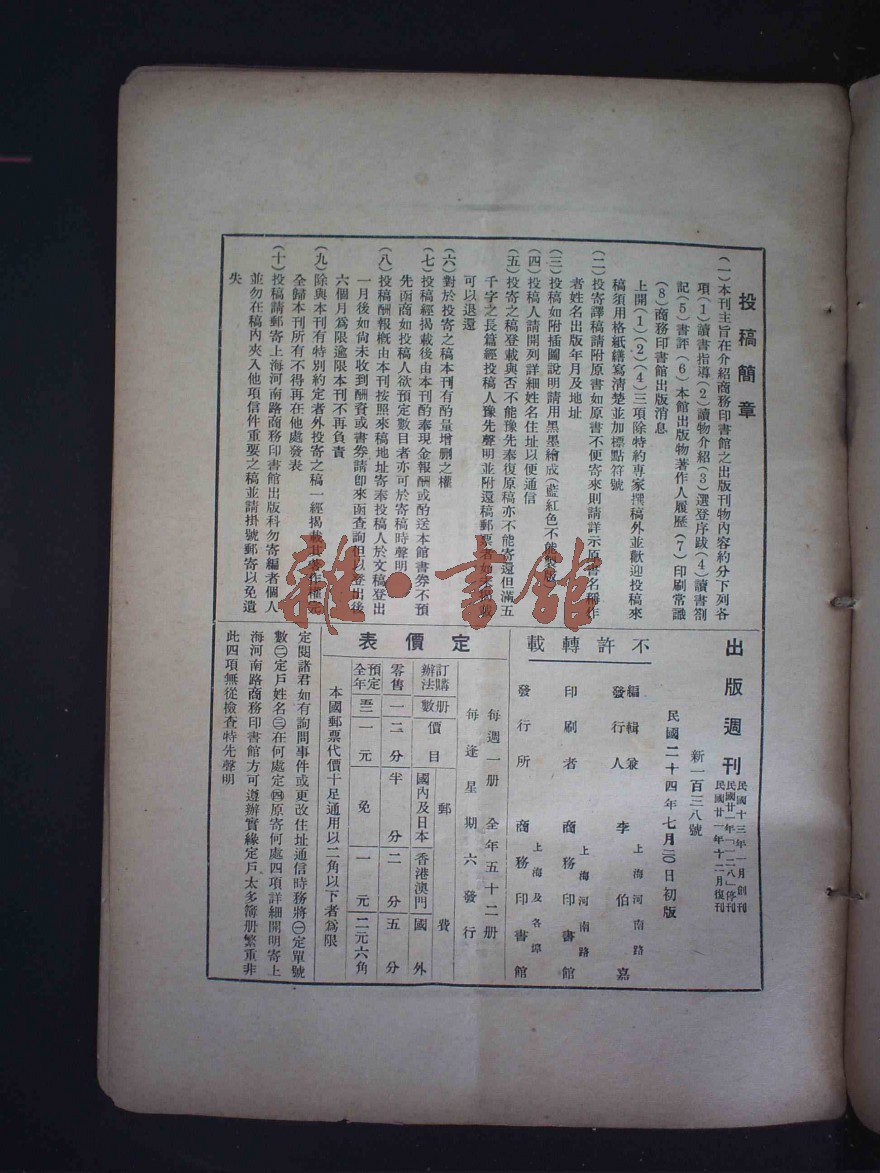 投稿簡章
(一)本刊主旨在介紹商務印書館之出版刊物內容約分下列各
項(1)讀書指導(2)讀物介紹(3)選登序跋(4)讀書劄
記(5)書評(6)本館出版物著作人履歷(7)印刷常識
(8)商務印書館出版消息
上開(1)(2)(4)三項除特約專家撰稿外並歡迎投稿來
稿須用格紙繕寫清楚並加標點符號
(二)投寄譯稿請附原書如原書不便寄來則請詳示原書名稱作
者姓名出版年月及地址
(三)投稿如附插圖說明請用黑墨繪成(藍紅色不能製版)
(四)投稿人請開列詳細姓名住址以便通信
(五)投寄之稿登載與否不能豫先奉復原稿亦不能寄還但滿五
千字之長篇經投稿人豫先聲明並附還稿郵票者如未揭載
可以退還
(六)對於投寄之稿本刊有酌量增删之權
(七)投稿經揭載後由本刊酌奉現金報酬或酌送本館書券不預
先函商如投稿人欲預定數目者亦可於寄稿時聲明
(八)投稿酬報概由本刊按照來稿地址寄奉投稿人於文稿登出
一月後如尚未收到酬資或書券請卽來函查詢但以登出後
六個月爲限逾限本刊不再負責
(九)除與本刊有特別約定者外投寄之稿一經揭載其著作權完
全歸本刊所有不得再在他處發表
(十)投稿請郵寄上海河南路商務印書館出版科勿寄編者個人
並勿在稿內夾入他項信件重要之稿並請掛號郵寄以免遺
失
出版週刊
民國十三年一月創刊
民國廿一年「一二八」停刊
民國廿一年十二月復刊
新一百三八號
民國二十四年七月二〇日初版
不許轉載
編輯兼發行人 李伯嘉 上海河南路
印刷者 商務印書館 上海河南路
發行所 商務印書館 上海及各埠
每週一册 全年五十二册
每逢星期六發行
定價表
訂購辦法 册數 價目 郵費 國內及日本 香港澳門 國外
零售 一 二分 半分 二分 五分
預定全年 五二 一元 免 一元 二元六角
本國郵票代價十足通用以二角以下者爲限
定閱諸君如有詢問事件或更改住址通信時務將㊀定單號
數㊁定戶姓名㊂在何處定㊃原寄何處四項詳細開明寄上
海河南路商務印書館方可遵辦實緣定戶太多簿册繁重非
此四項無從檢查特先聲明
雜·書館